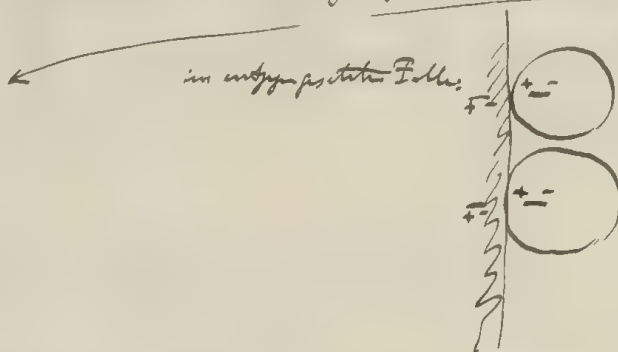 im entgegengesetzten Falle:
+ - + -
+ - + -